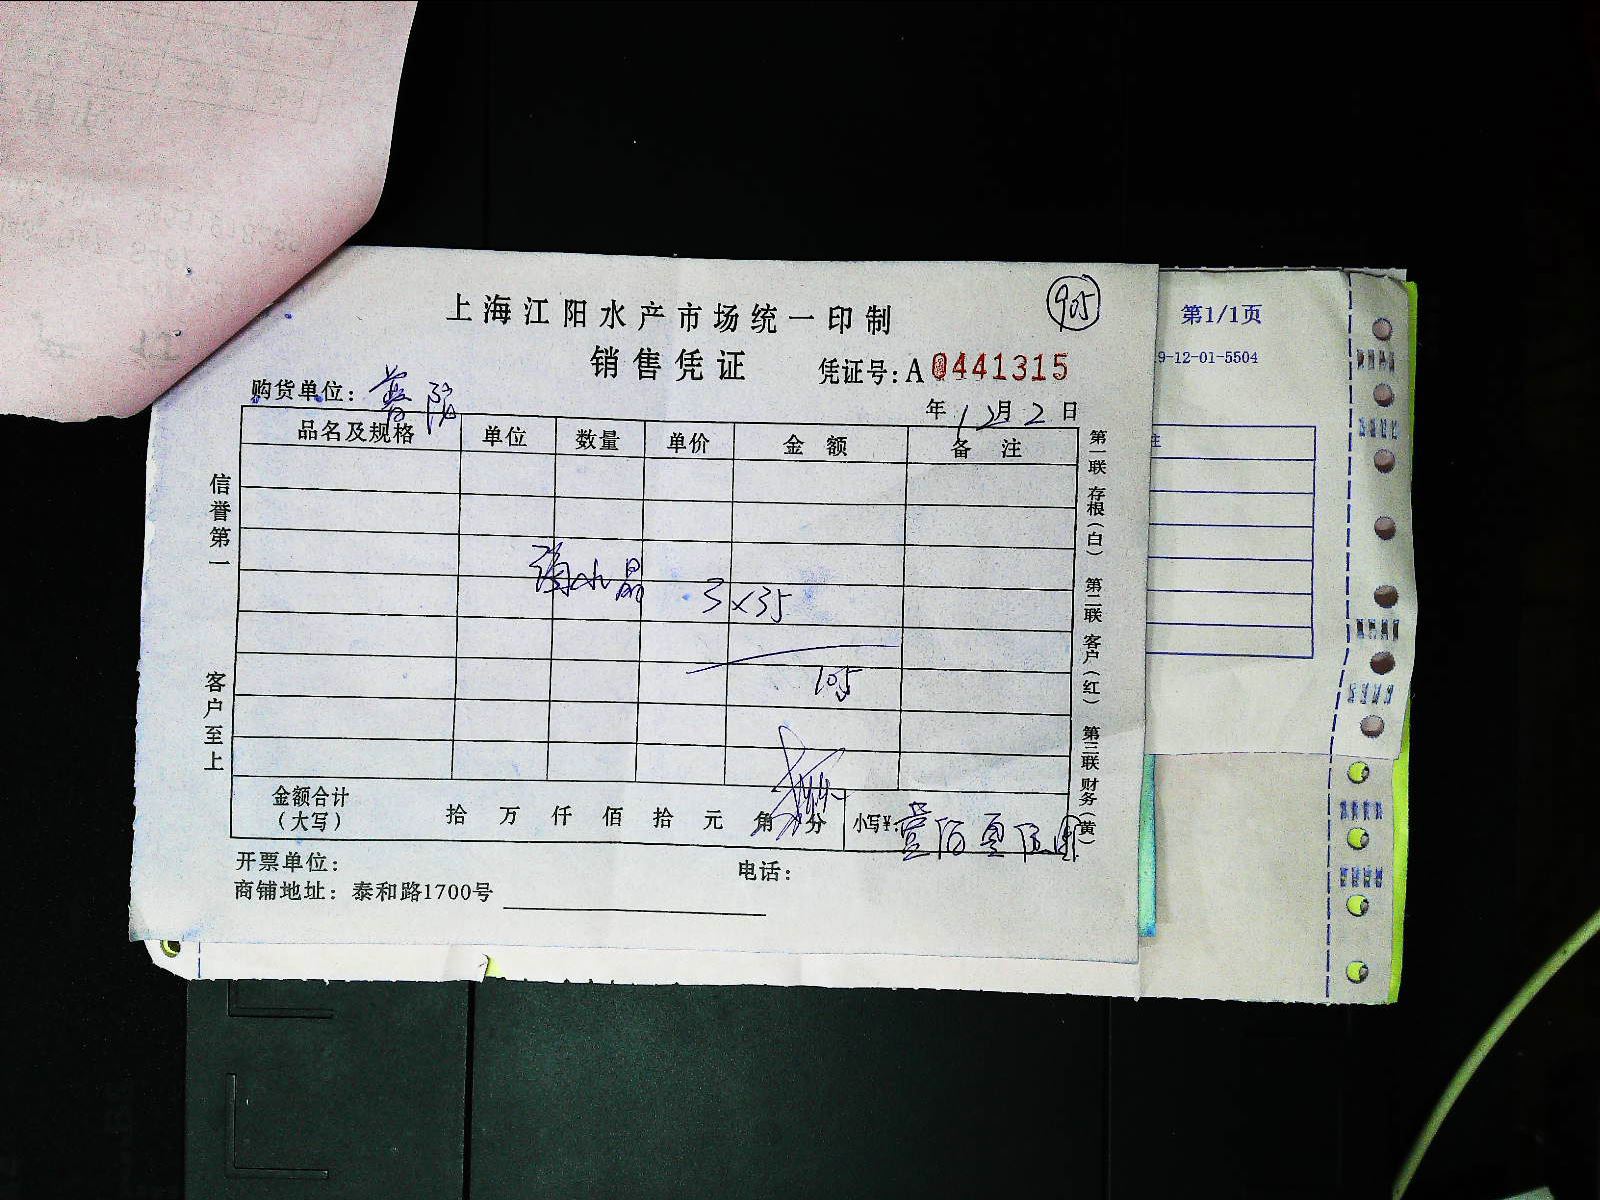 905
上海江阳水产市场统一印制
销售凭证
凭证号:A 0441315
第1/1页
9-12-01-5504
购货单位:
年 12月2日
品名及规格 单位 数量 单价 金额 备注
水晶 3×35
105
金额合计(大写) 拾 万 仟 佰 拾 元 角 分 小写¥: 壹佰零伍圆
开票单位: 电话:
商铺地址:泰和路1700号
信誉第一
客户至上
第一联 存根(白) 第二联 客户(红) 第三联 财务(黄)